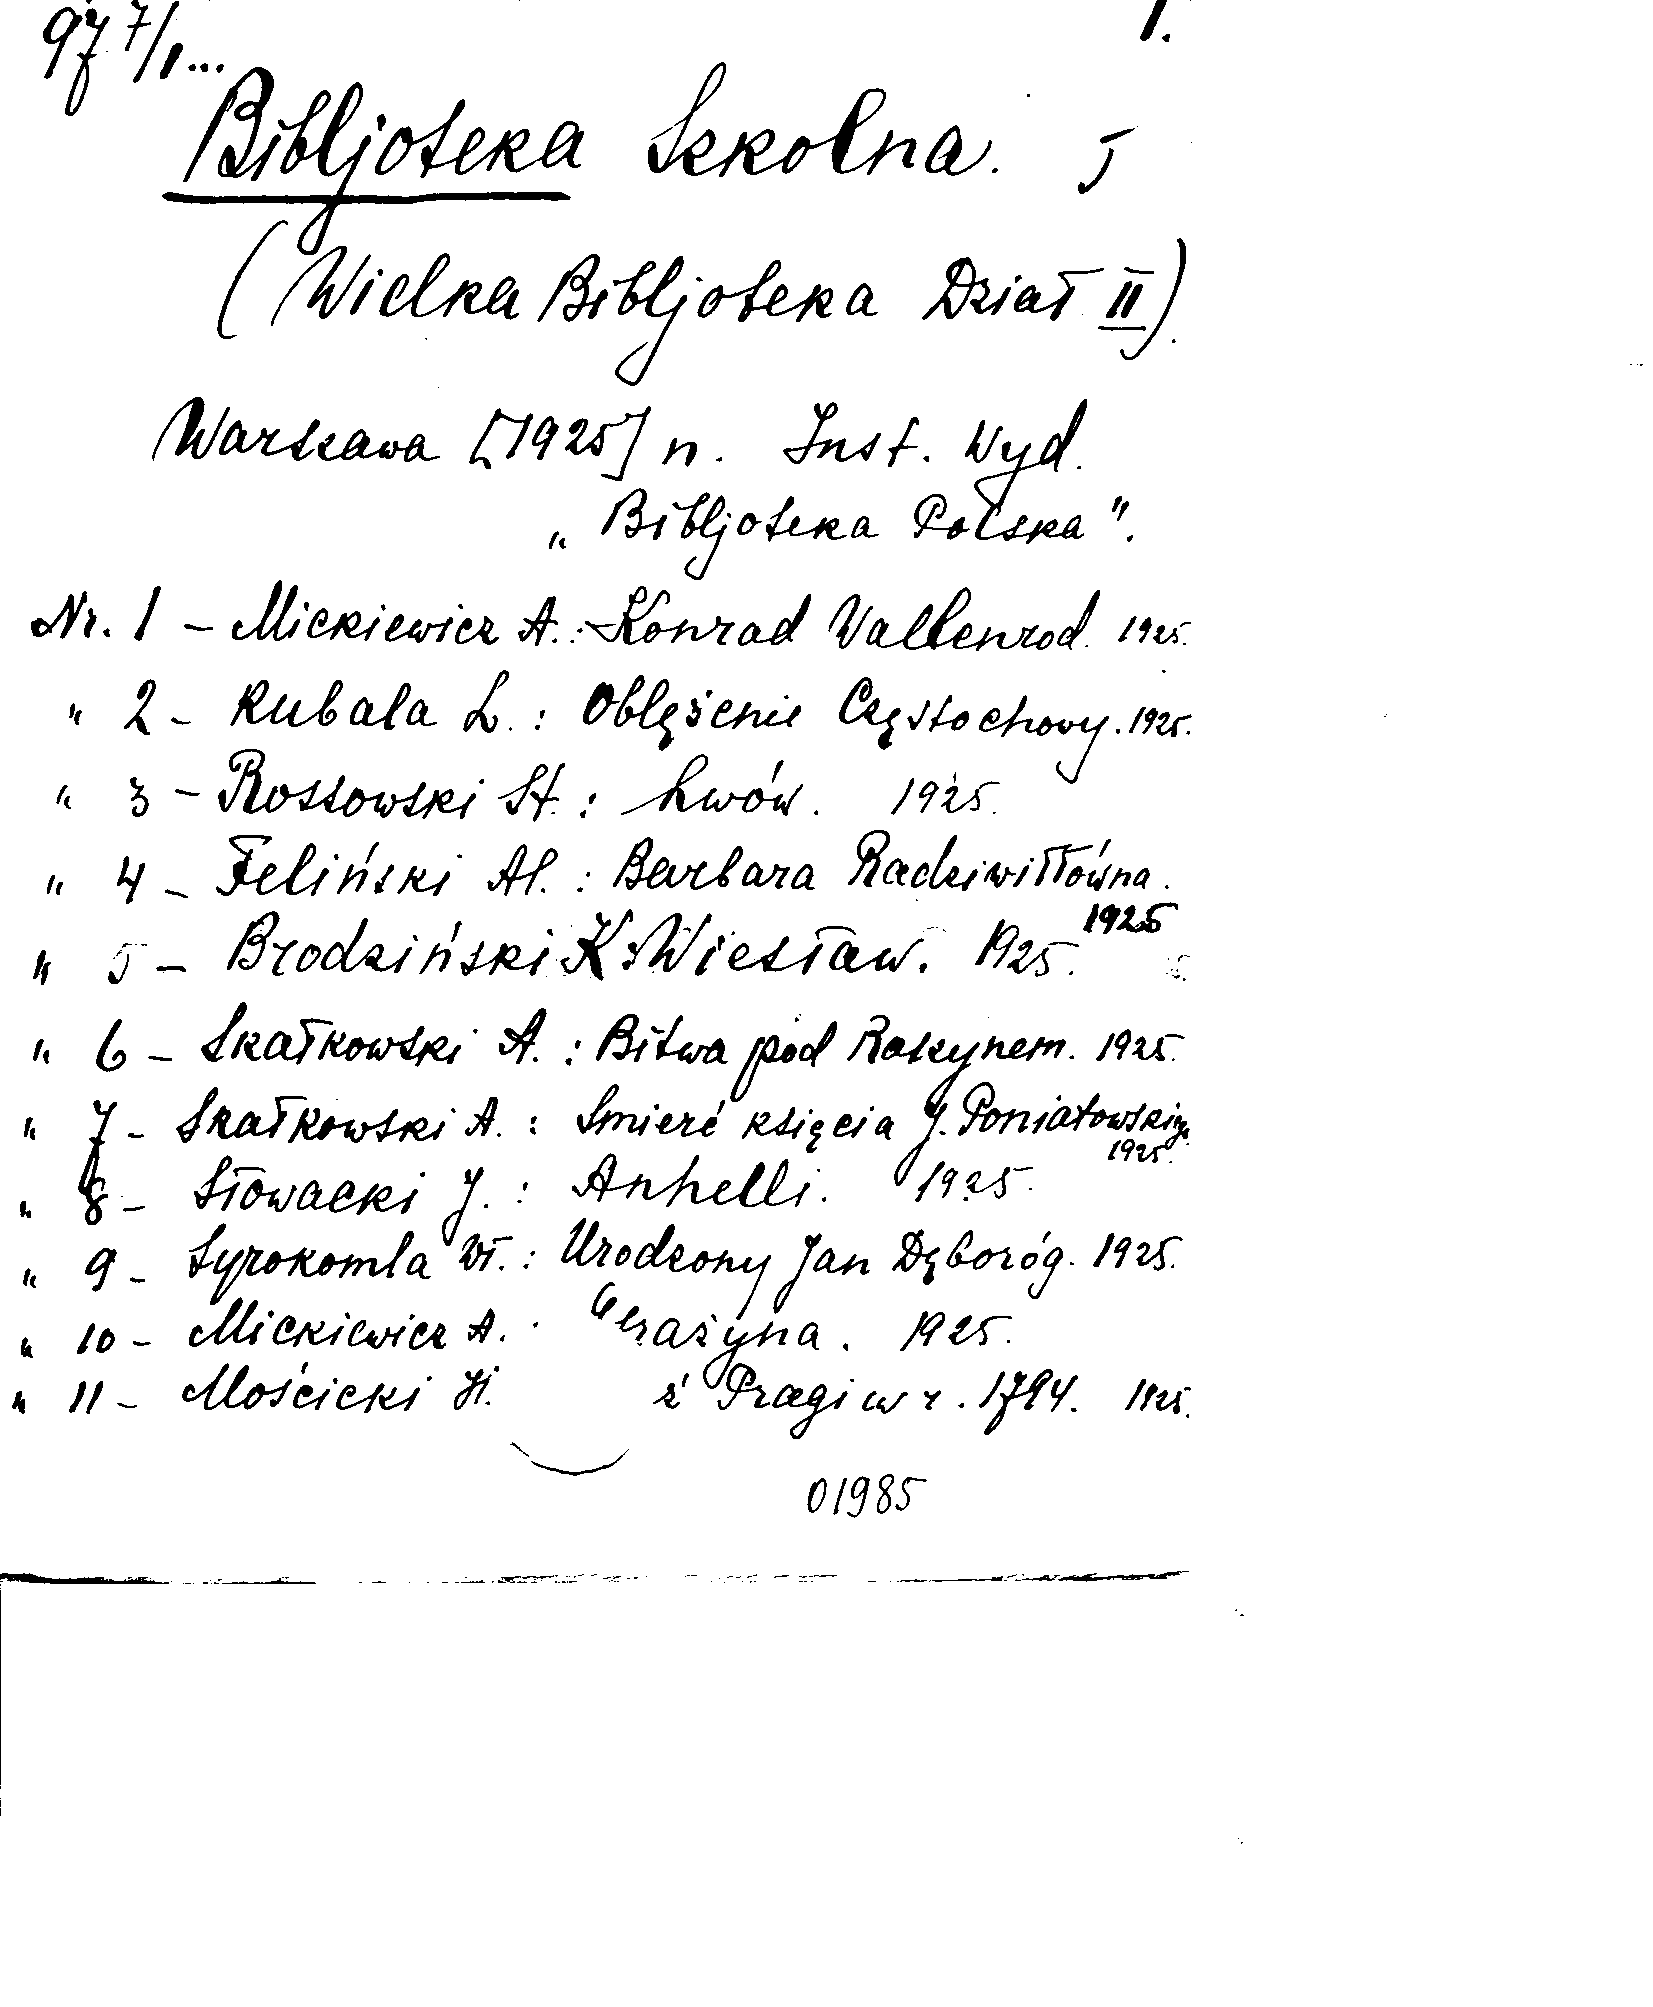 977/1... 1.
Bibljoteka Szkolna. J
(Wielka Bibljoteka Dział II)
Warszawa [1925] n. Inst. Wyd.
„Bibljoteka Polska".
Nr. 1 - Mickiewicz A.: Konrad Wallenrod. 1925.
" 2 - Kubala L.: Oblężenie Częstochowy. 1925.
" 3 - Rossowski St.: Lwów. 1925.
" 4 - Feliński Al.: Barbara Radziwiłłówna.
1925
" 5 - Brodziński K: Wiesław. 1925.
" 6 - Skałkowski A.: Bitwa pod Raszynem. 1925.
" 7 - Skałkowski A.: Śmierć księcia J. Poniatowskiego
1925.
" 8 - Słowacki J.: Anhelli. 1925.
" 9 - Syrokomla Wł.: Urodzony Jan Dęboróg. 1925.
" 10 - Mickiewicz A. Grażyna. 1925.
" 11 - Mościcki H. ź Pragi w r. 1794. 1925.
01985